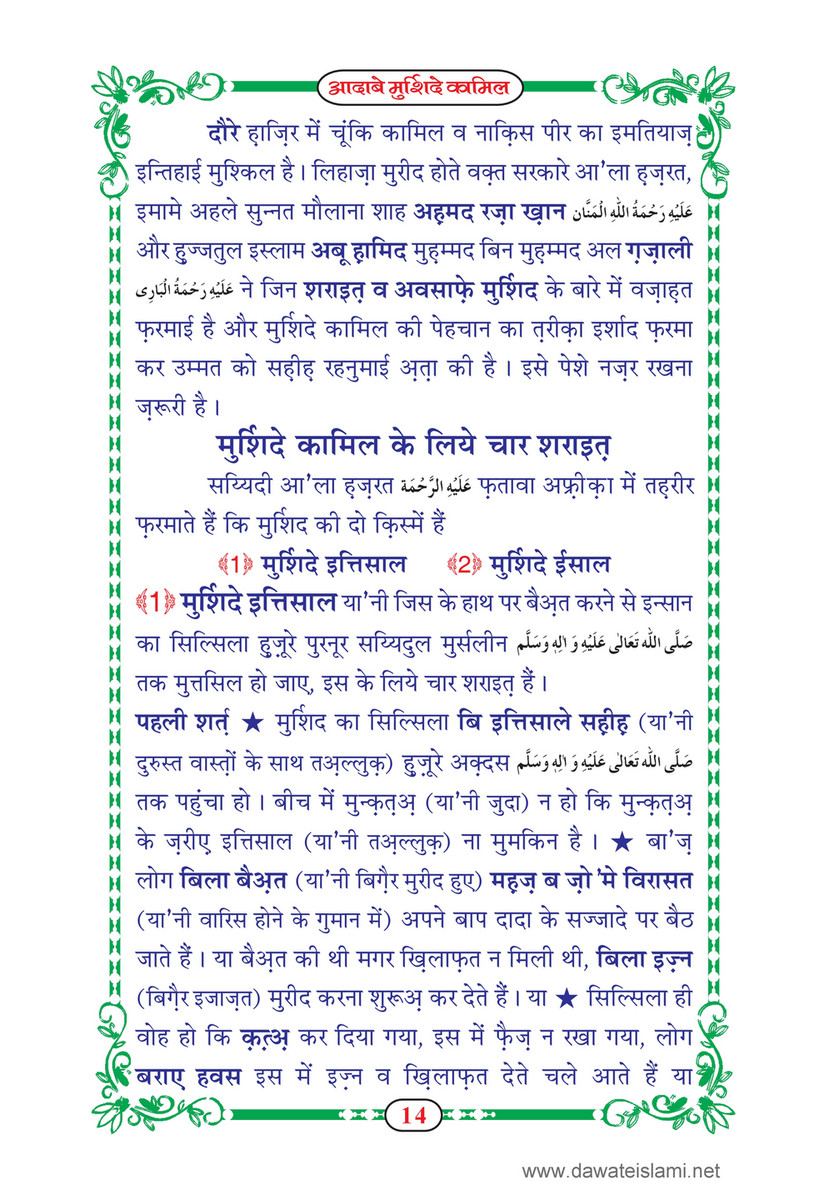 आदाबे मुर्शिदे कामिल
दौरे ह़ाज़िर में चूंकि कामिल व नाक़िस पीर का इमतियाज़
इन्तिहाई मुश्किल है । लिहाज़ा मुरीद होते वक़्त सरकारे आ'ला ह़ज़रत,
इमामे अहले सुन्नत मौलाना शाह अह़मद रज़ा ख़ान عَلَيْهِ رَحْمَةُ اللهِ الْمَنَّان
और हु़ज्जतुल इस्लाम अबू ह़ामिद मुह़म्मद बिन मुह़म्मद अल ग़ज़ाली
عَلَيْهِ رَحْمَةُ الْبَارِى ने जिन शराइत़ व अवसाफ़े मुर्शिद के बारे में वज़ाह़त
फ़रमाई है और मुर्शिदे कामिल की पेहचान का त़रीक़ा इर्शाद फ़रमा
कर उम्मत को सह़ीह़ रहनुमाई अ़त़ा की है । इसे पेशे नज़र रखना
ज़रूरी है ।
मुर्शिदे कामिल के लिये चार शराइत़
सय्यिदी आ'ला ह़ज़रत عَلَيْهِ الرَّحْمَة फ़तावा अफ़्रीक़ा में तह़रीर
फ़रमाते हैं कि मुर्शिद की दो क़िस्में हैं
﴾1﴿ मुर्शिदे इत्तिसाल ﴾2﴿ मुर्शिदे ईसाल
﴾1﴿ मुर्शिदे इत्तिसाल या'नी जिस के हाथ पर बैअ़त करने से इन्सान
का सिल्सिला हु़ज़ूरे पुरनूर सय्यिदुल मुर्सलीन صَلَّى الله تَعَالٰى عَلَيْهِ وَاٰلِهٖ وَسَلَّم
तक मुत्तसिल हो जाए, इस के लिये चार शराइत़ हैं ।
पहली शर्त़ ★ मुर्शिद का सिल्सिला बि इत्तिसाले सह़ीह़ (या'नी
दुरुस्त वास्त़ों के साथ तअ़ल्लुक़) हु़ज़ूरे अक़्दस صَلَّى الله تَعَالٰى عَلَيْهِ وَاٰلِهٖ وَسَلَّم
तक पहुंचा हो । बीच में मुन्क़त़अ़ (या'नी जुदा) न हो कि मुन्क़त़अ़
के ज़रीए इत्तिसाल (या'नी तअ़ल्लुक़) ना मुमकिन है । ★ बा'ज़
लोग बिला बैअ़त (या'नी बिग़ैर मुरीद हुए) मह़ज़ ब ज़ो'मे विरासत
(या'नी वारिस होने के गुमान में) अपने बाप दादा के सज्जादे पर बैठ
जाते हैं । या बैअ़त की थी मगर ख़िलाफ़त न मिली थी, बिला इज़्न
(बिग़ैर इजाज़त) मुरीद करना शुरूअ़ कर देते हैं । या ★ सिल्सिला ही
वोह हो कि क़त़्अ़ कर दिया गया, इस में फ़ैज़ न रखा गया, लोग
बराए हवस इस में इज़्न व ख़िलाफ़त देते चले आते हैं या
14
www.dawateislami.net